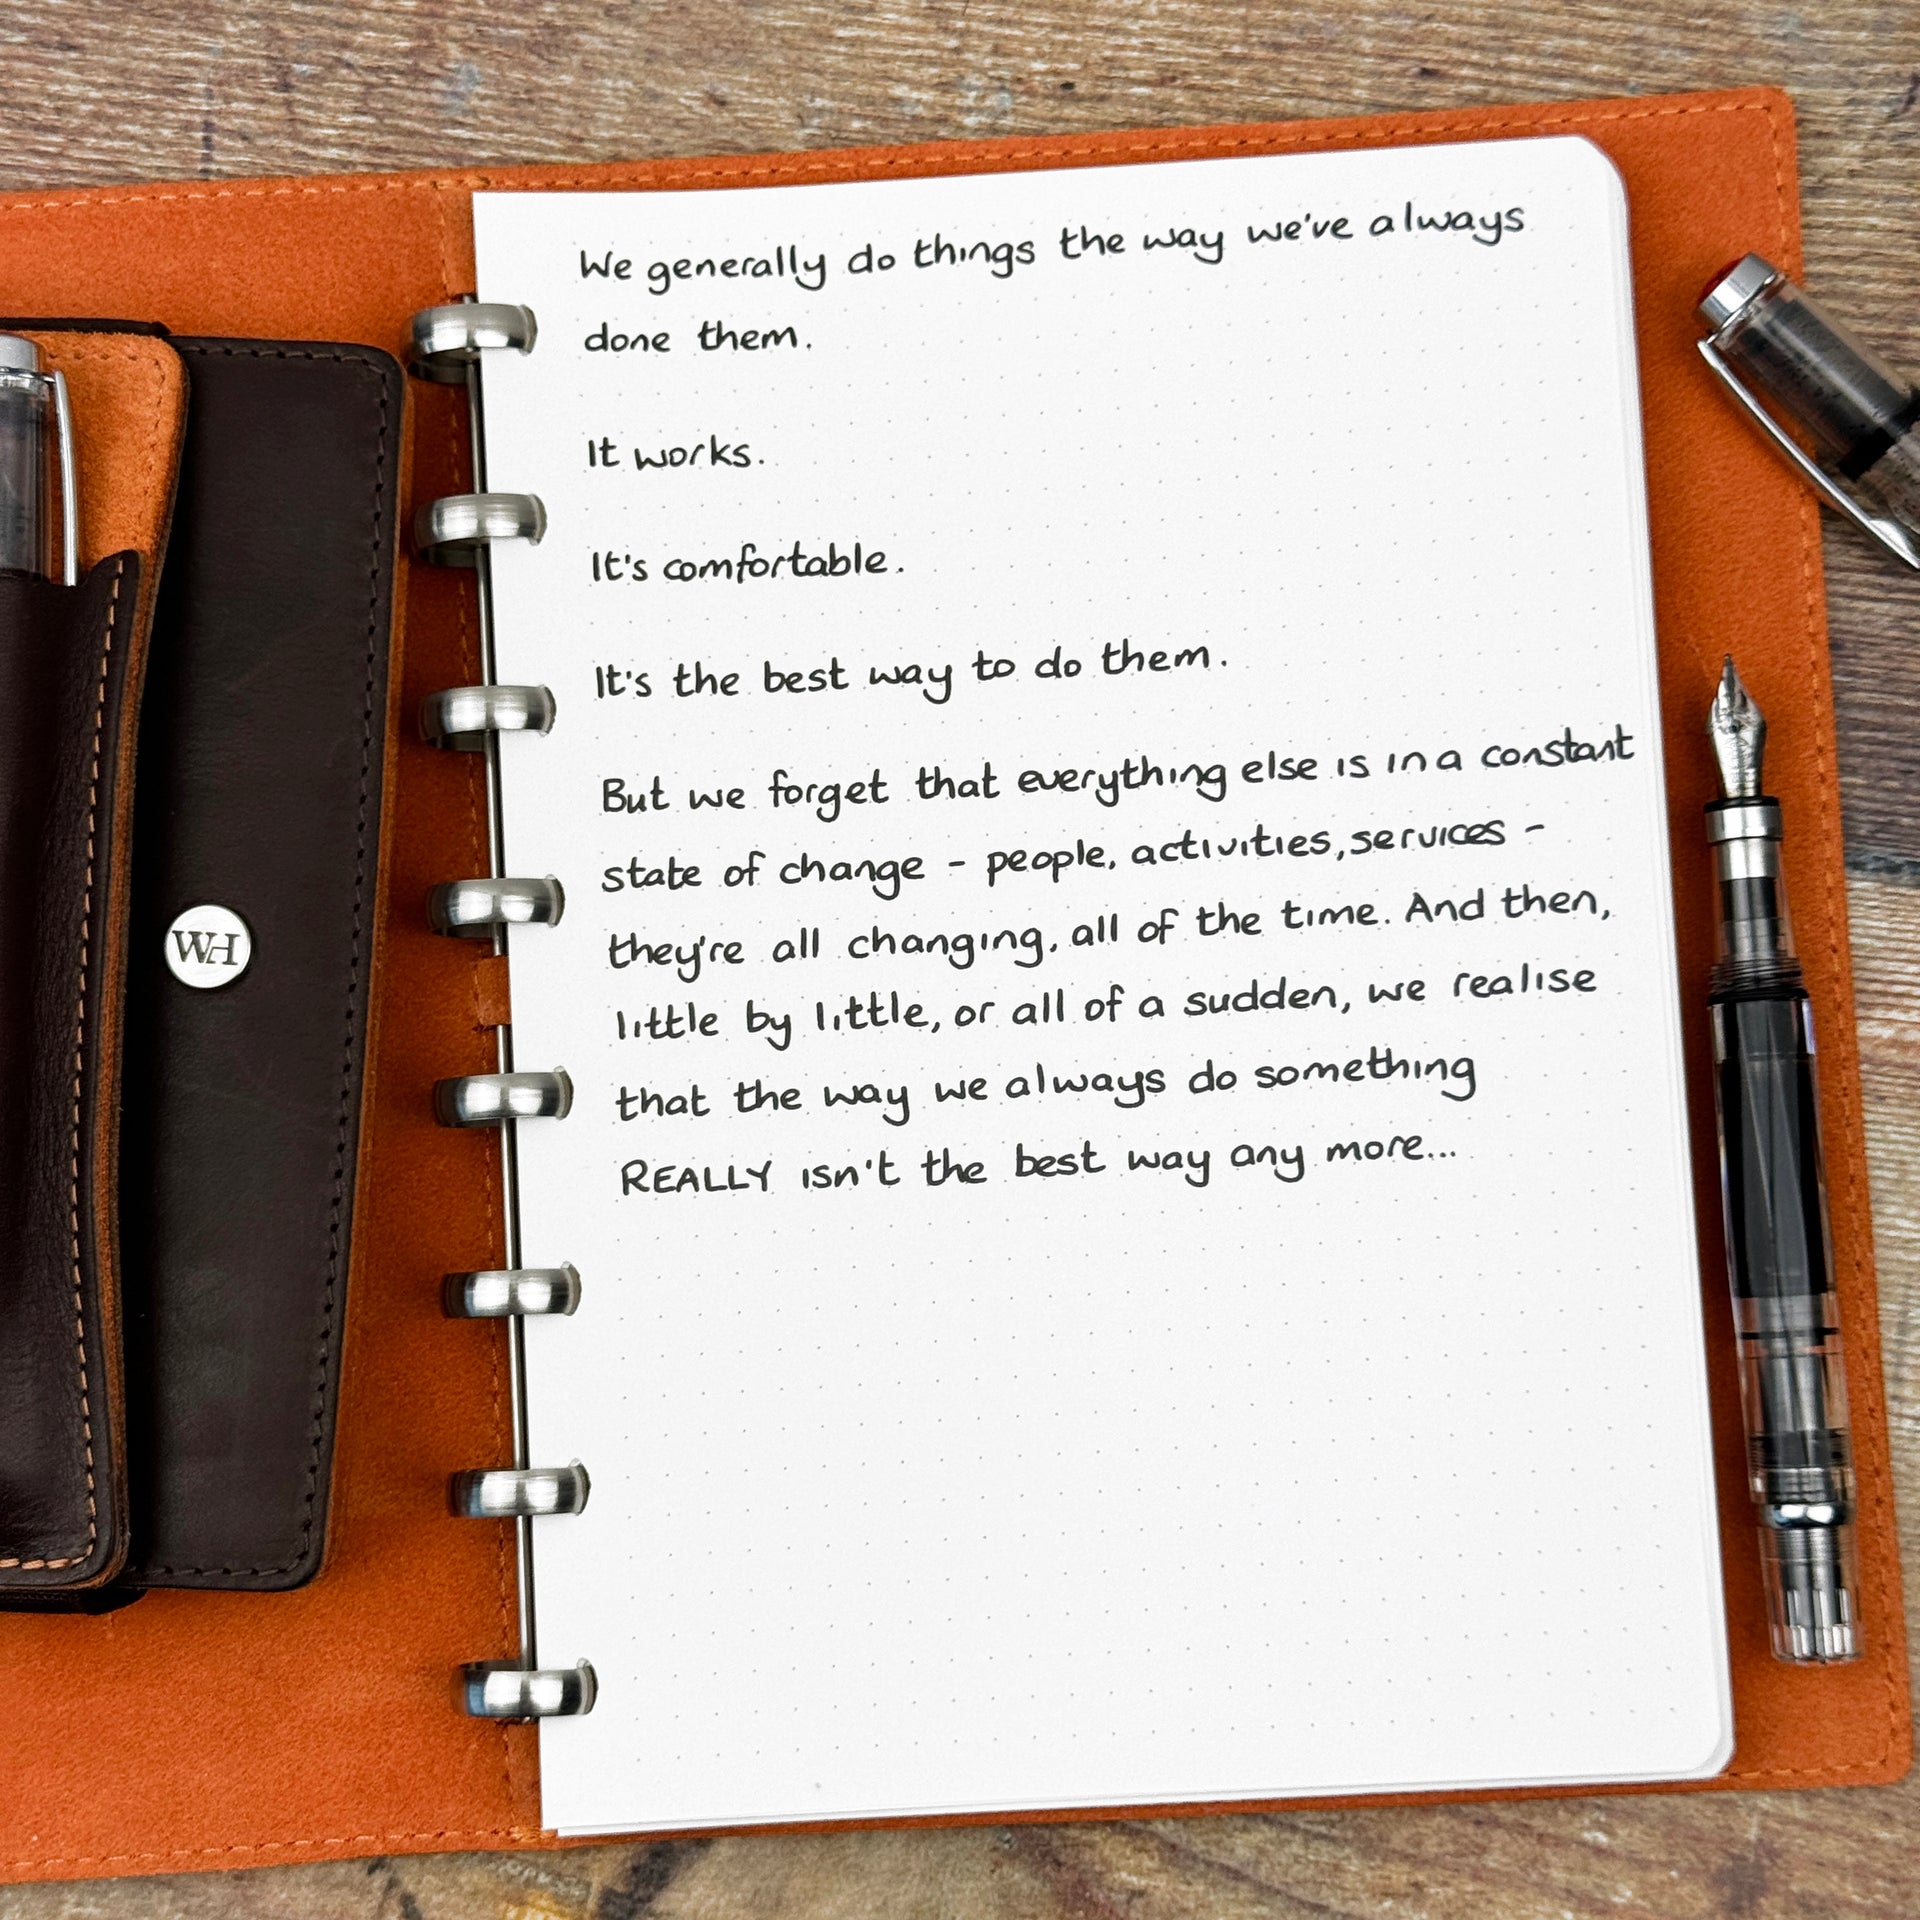 We generally do things the way we've always
done them.
It works.
It's comfortable.
It's the best way to do them.
But we forget that everything else is in a constant
state of change - people, activities, services -
they're all changing, all of the time. And then,
little by little, or all of a sudden, we realise
that the way we always do something
REALLY isn't the best way any more...
WH